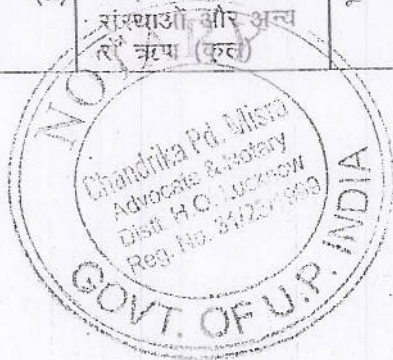 संस्थाओं और अन्य
से ऋण (कुल)
Chandrika Pd. Misra
Advocate & Notary
Distt. H.O. Lucknow
GOVT. OF U.P. INDIA